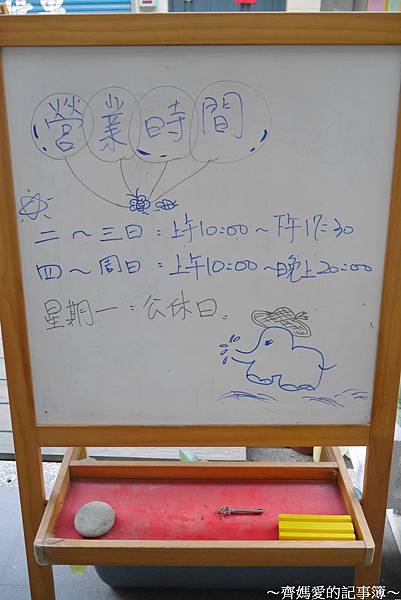 營業時間
二～三日：上午10:00～下午17:30
四～周日：上午10:00～晚上20:00
星期一：公休日。
～齊媽愛的記事簿～